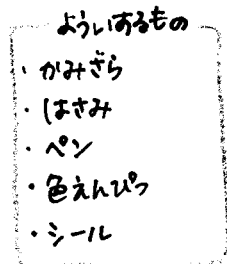 よういするもの
・かみざら
・はさみ
・ペン
・色えんぴつ
・シール